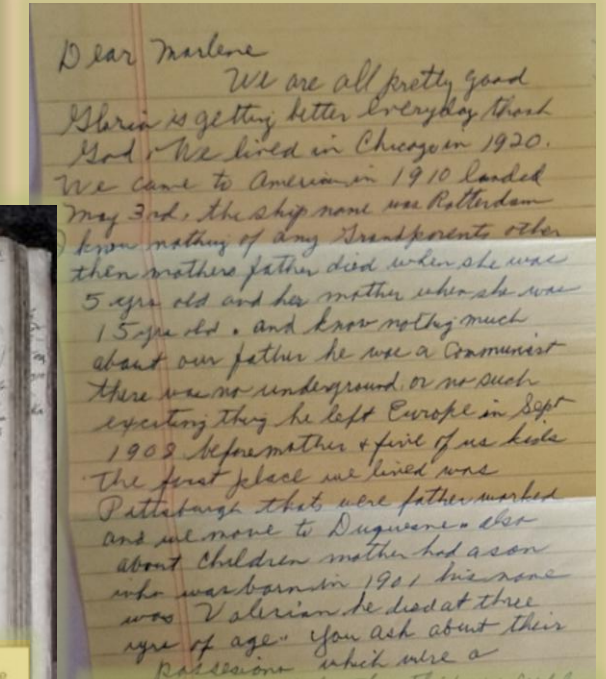 Dear Marlene
We are all pretty good
Gloria is getting better everyday thank
God. We lived in Chicago in 1920.
We came to America in 1910 landed
May 3rd, the ship name was Rotterdam
I know nothing of any Grandparents other
then mothers father died when she was
5 yrs old and her mother when she was
15 yrs old. and know nothing much
about our father he was a Communist
there was no underground or no such
exciting thing he left Europe in Sept
1909 before mother & five of us kids
the first place we lived was
Pittsburgh thats were father worked
and we move to Duquesne. also
about children mother had a son
who was born in 1901 his name
was Valerian he died at three
yrs of age. You ask about their
possesions which were a